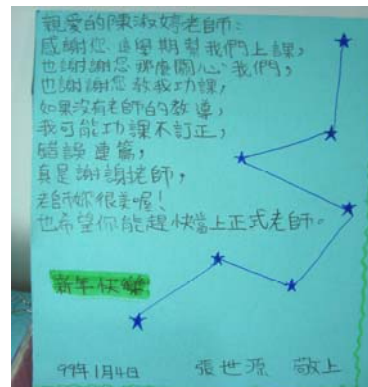 親愛的陳淑婷老師：
感謝您這學期幫我們上課，
也謝謝您那麼關心我們，
也謝謝您教我功課，
如果沒有老師的教導，
我可能功課不訂正，
錯誤連篇，
真是謝謝老師，
老師妳很美喔！
也希望你能趕快當上正式老師。
新年快樂
99年1月4日 張世源 敬上